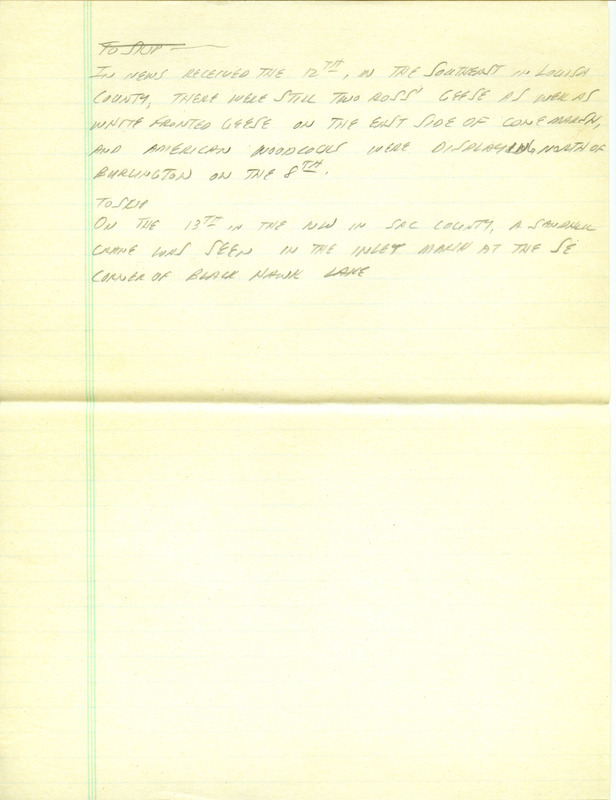 TO SKIP —
IN NEWS RECEIVED THE 12TH, IN THE SOUTHEAST IN LOUISA
COUNTY, THERE WERE STILL TWO ROSS' GEESE AS WELL AS
WHITE FRONTED GEESE ON THE EAST SIDE OF CONE MARSH,
AND AMERICAN WOODCOCKS WERE DISPLAYING NORTH OF
BURLINGTON ON THE 8TH.
TO SKIP
ON THE 13TH IN THE NW IN SAC COUNTY, A SANDHILL
CRANE WAS SEEN IN THE INLET MARSH AT THE SE
CORNER OF BLACK HAWK LAKE